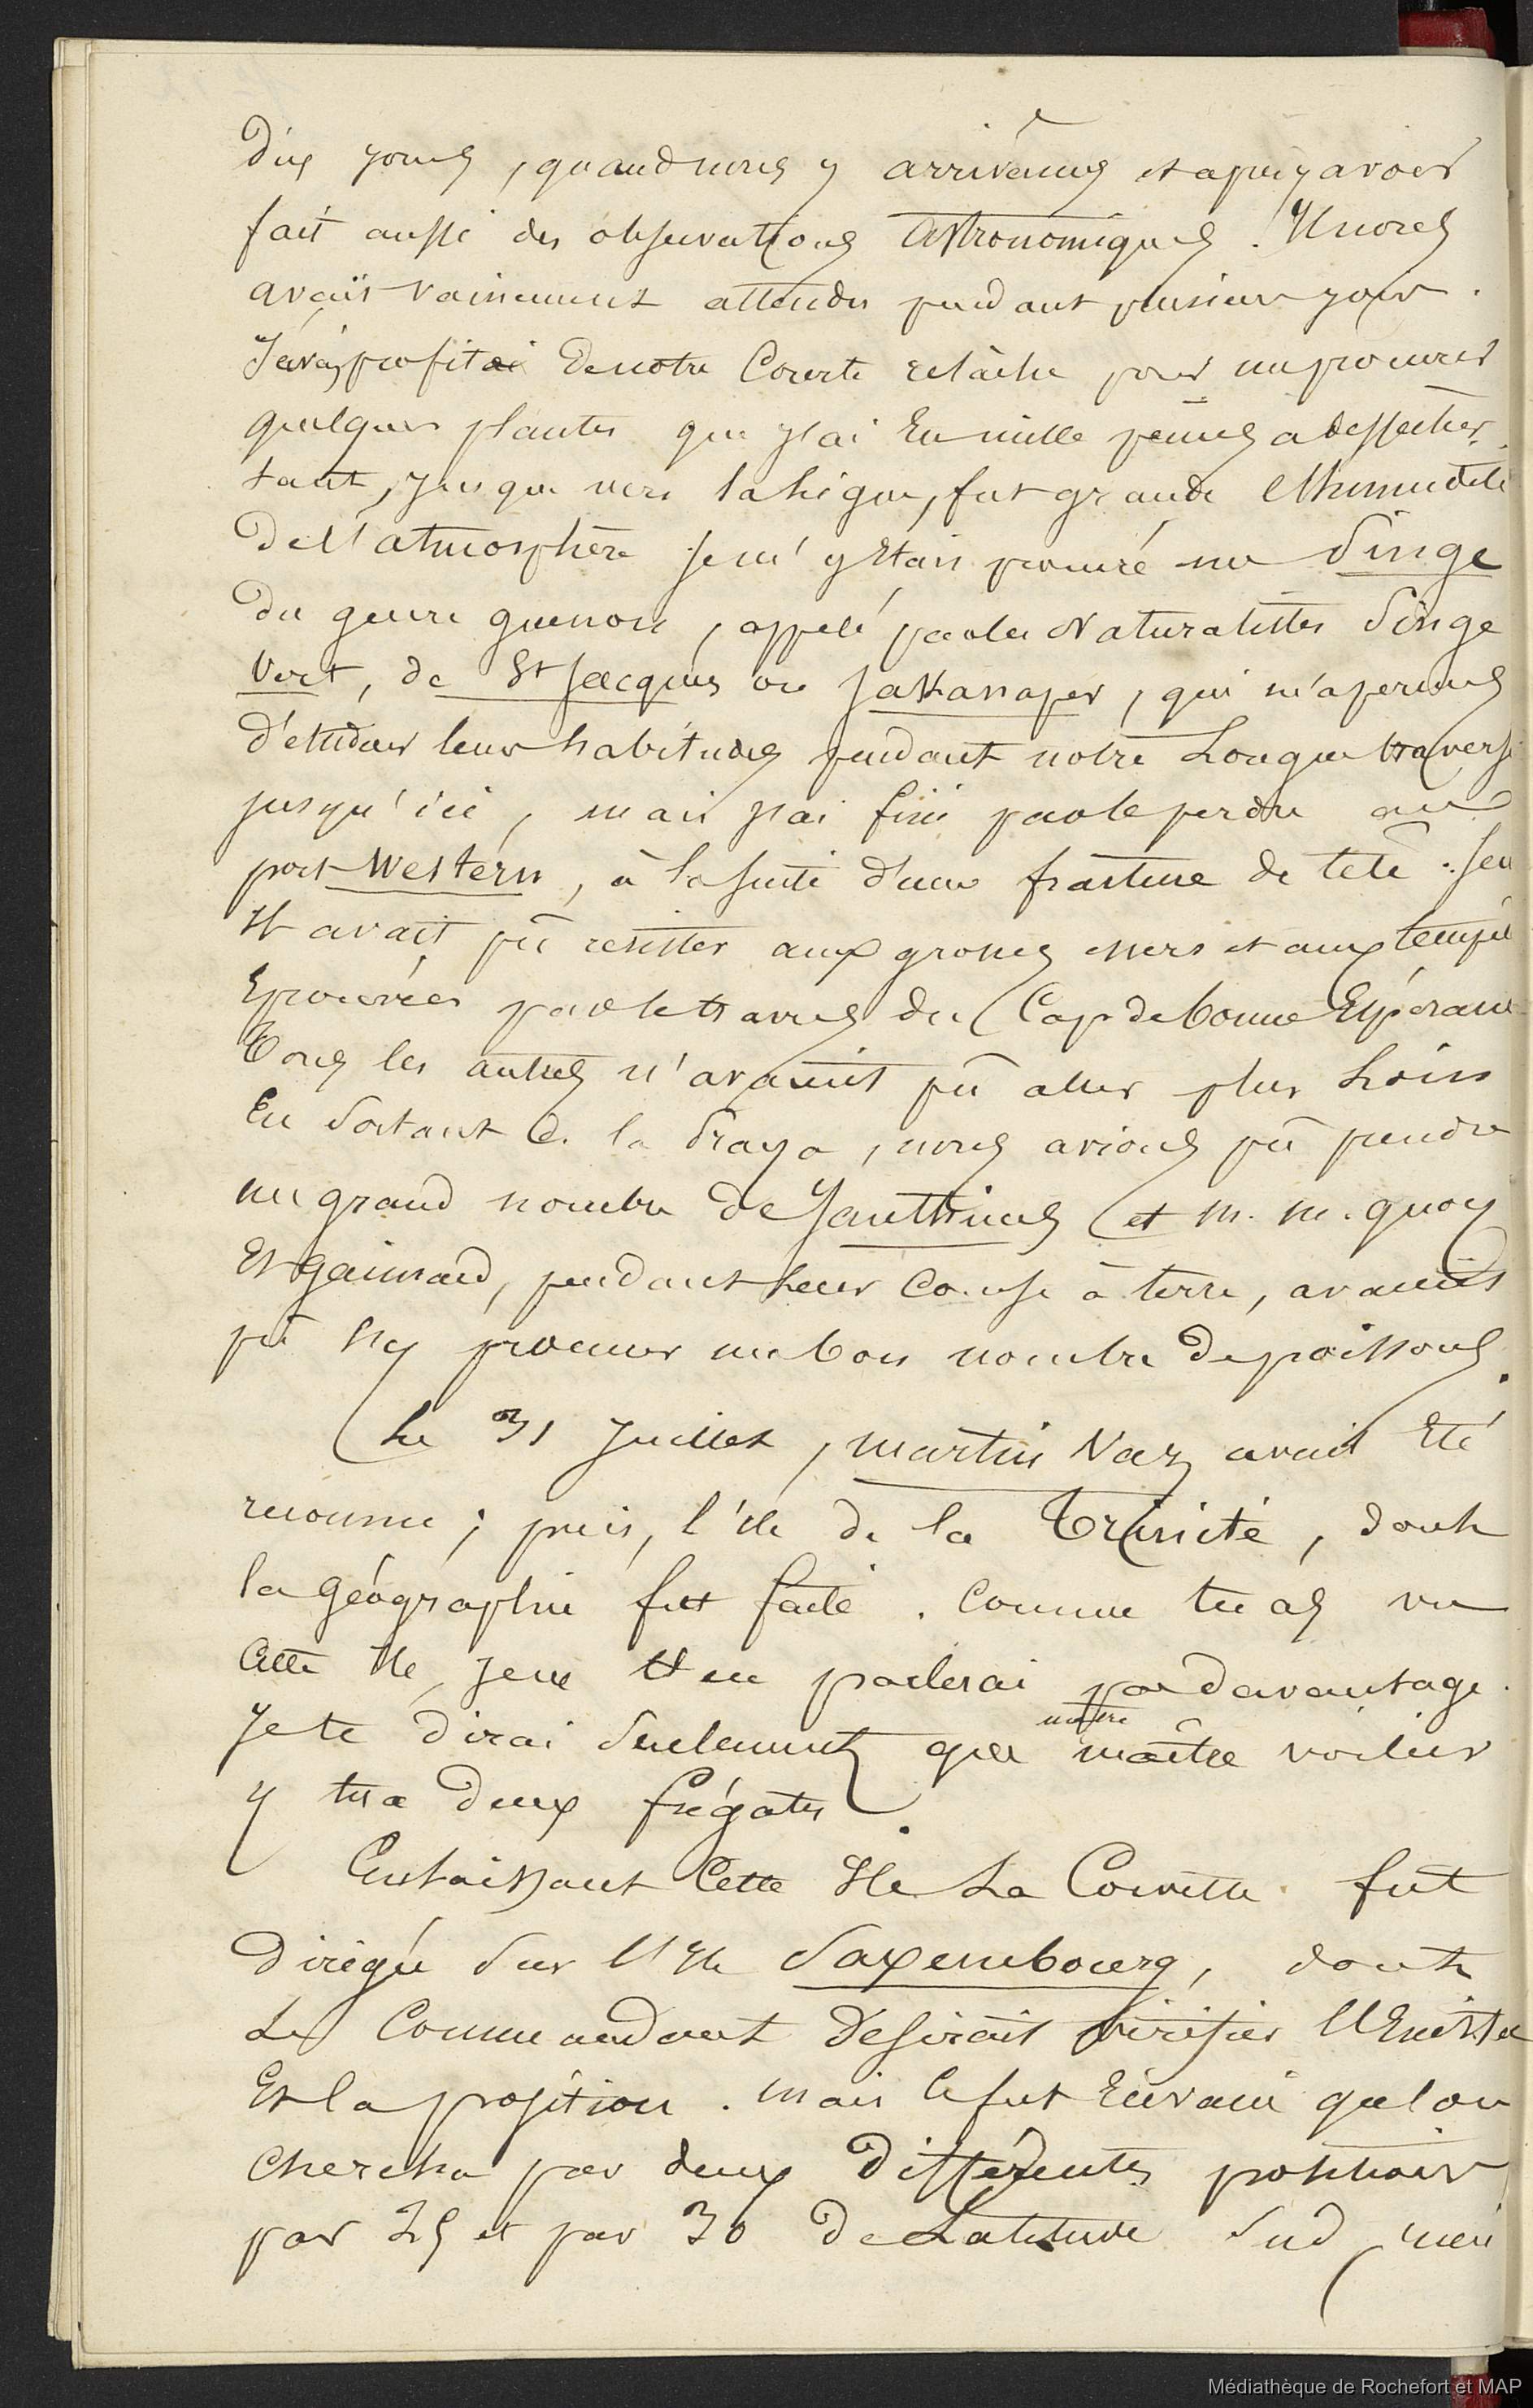 dix jours, quand nous y arrivâmes et après y avoir
fait aussi des observations astronomiques. Il nous
avait vainement attendu pendant plusieurs jours.
J'avais profité de notre courte relâche pour me procurer
quelques plantes que j'ai eu mille peines a dessécher
tant, jusque vers la ligne, fut grande l'humidité
de l'atmosphère je m'y étais procuré un Singe
du genre guenon, appelé par les Naturalistes Singe
Vert, de St Jacques ou , qui m'a permis
d'étudier leurs habitudes pendant notre Longue traversée
jusqu'ici, mais j'ai fini par le perdre au
port Western, à la suite d'une fracture de tête. Seul
Il avait pû résister aux grosses mers et aux tempêtes
Eprouvées par le travers du Cap de bonne Espérance
Tous les autres n'avaient pû aller plus Loin
En sortant de la Praya, nous avions pû prendre
un grand nombre de Janthines et M. M. quoy
Et gaimard, pendant Leur Course à terre, avaient
pû s'y procurer un bon nombre de poissons.
Le 31 Juillet, Martin Vaz avait Eté
reconnu ; puis, l'île de la Trinité, dont
la géographie fut faite. Comme tu as vu
Cette Ile, je ne t'en parlerai pas davantage.
Je te dirai seulement que notre maître voilier
y tua deux frégates.
En laissant Cette Ile La Corvette fut
Dirigée sur l'Ile Saxembourg, dont
Le Commandant desirait vérifier l'Existence
Et la position. mais ce fut En vain que l'on
Chercha par deux différentes positions
par 29 et par 30 de Latitude Sud,